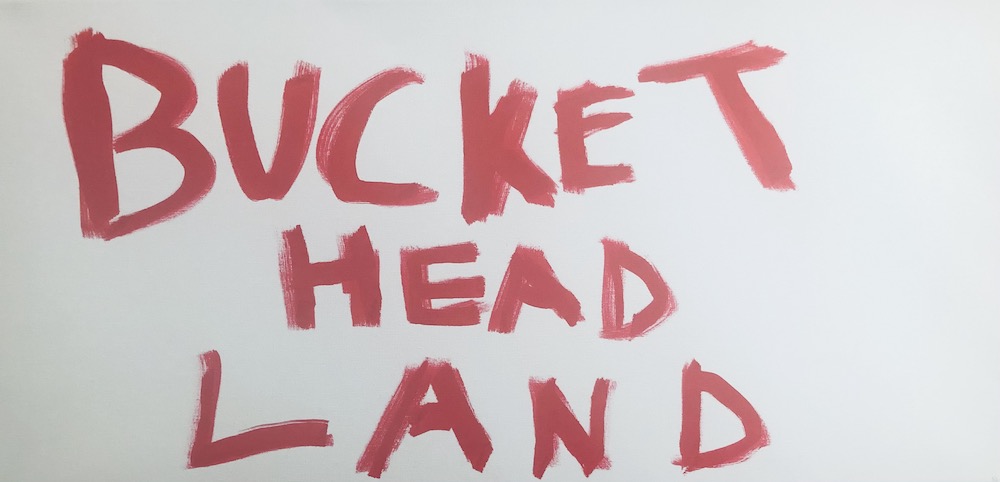 BUCKET
HEAD
LAND